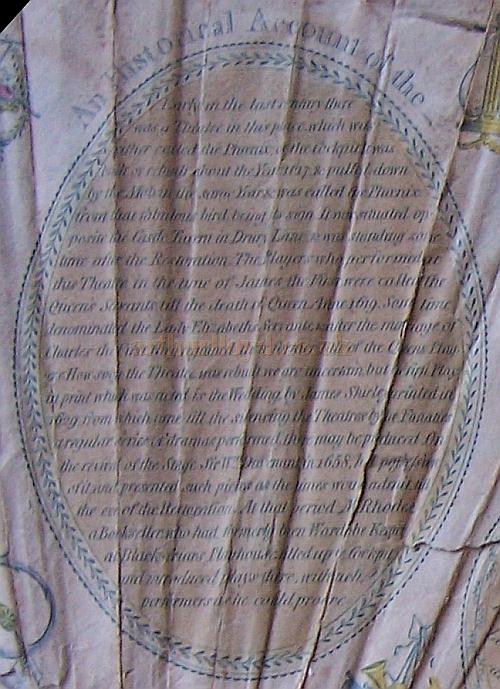 An Historical Account of the
Early in the last century there
was a Theatre in this place which was
either called the Phoenix, or the Cockpit, was
built or rebuilt about the Year 1617 & pulled down
by the Mob in the same Year & was called the Phoenix
from that fabulous bird being its sign. It was situated op-
posite the Castle Tavern in Drury Lane & was standing some
time after the Restoration. The Players who performed at
this Theatre in the time of James the First were called the
Queen's Servants till the death of Queen Anne 1619. Some time
denominated the Lady Elizabeths Servants, under the marriage of
Charles the of the Queens Play
ers How soon the Theatre was rebuilt we are uncertain, but Play
in print which was acted is the Wedding by James Shirley printed in
1629 from which time till the silencing the Theatres by the Fanatics
a regular series of dramas performed there may be produced. On
the revival of the Stage Sir Wm. Davenant in 1658, took possession
of it and presented such pieces as the times would admit till
the eve of the Restoration. At that period Mr Rhodes
a Bookseller who had formerly been Wardrobe Keeper
at Black-friars Playhouse, fitted up ye Cockpit
and introduced plays there, with such
performers as he could procure